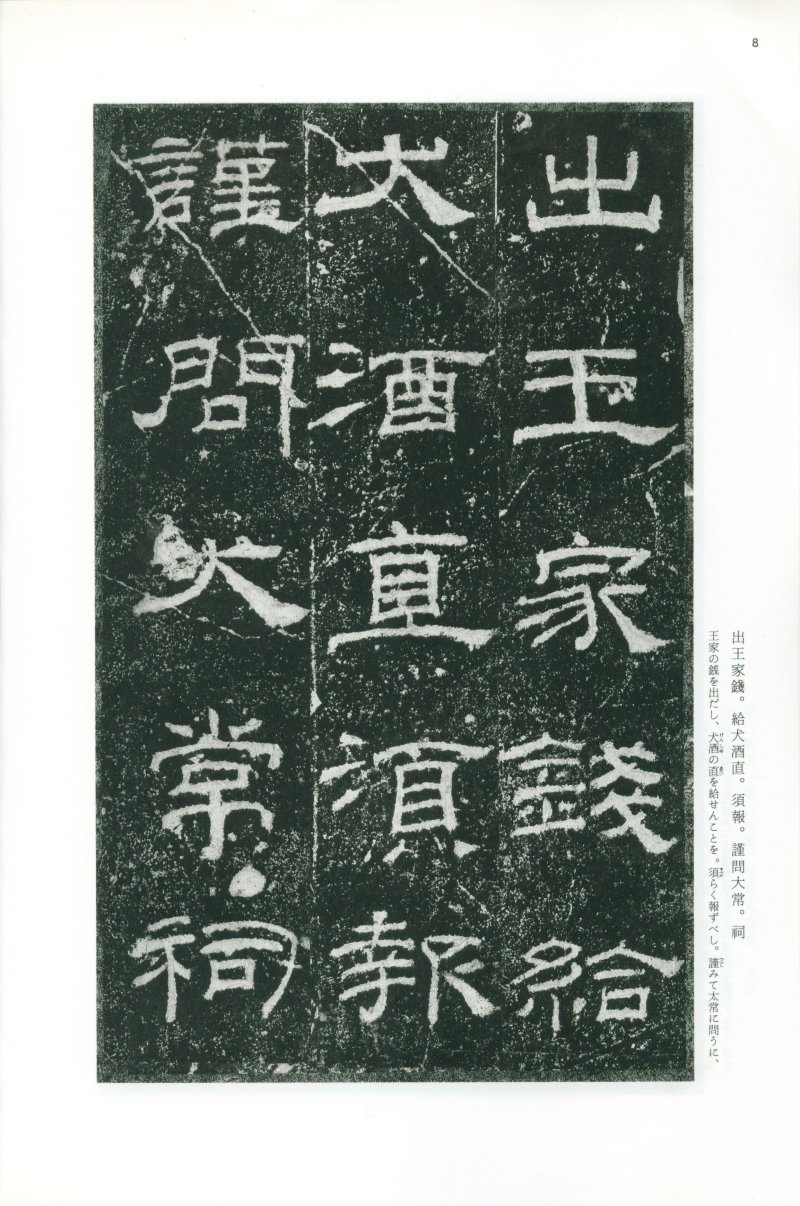 8
出王家錢給
犬酒直須報
謹問大常祠
出王家錢。給犬酒直。須報。謹問大常。祠
王家の銭を出だし、犬酒の直を給せんことを。須らく報ずべし。謹みて太常に問うに、